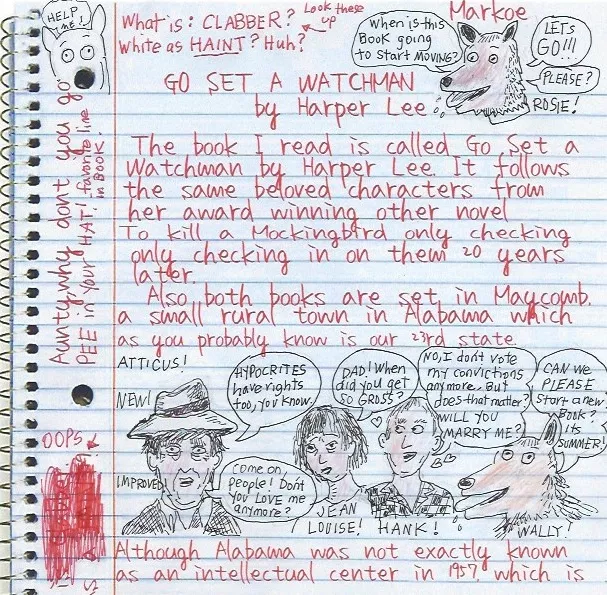 HELP
ME!
What is: CLABBER?
Look these
up
White as HAINT? Huh?
When is this
Book going
to start MOVING?
Markoe
LETS
GO!!!
PLEASE?
ROSIE!
GO SET A WATCHMAN
by Harper Lee
The book I read is called Go Set a
Watchman by Harper Lee. It follows
the same beloved characters from
her award winning other novel
To kill a Mockingbird only checking
only checking in on them 20 years
later.
Also both books are set in Maycomb,
a small rural town in Alabama which
as you probably know is our 23rd state.
Aunty, why don't you go
PEE in your HAT! favorite line
in Book!
OOPS
ATTICUS!
NEW!
IMPROVED!
HYPOCRITES
have rights
too, you know.
Come on,
people! Don't
you LOVE me
anymore?
DAD! When
did you get
so GROSS?
JEAN
LOUISE!
NO, I don't vote
my convictions
anymore. But
does that matter?
WILL YOU
MARRY ME?
HANK!
CAN WE
PLEASE
Start a new
Book?
its
SUMMER!
WALLY!
Although Alabama was not exactly known
as an intellectual center in 1957, which is